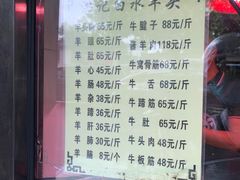 白水羊头
羊头肉 65元/斤
羊头 66元/斤
羊肚 65元/斤
羊心 45元/斤
羊肠 48元/斤
羊杂 38元/斤
羊蹄 36元/斤
羊肝 36元/斤
羊肺 30元/斤
羊腰 8元/个
牛腱子 88元/斤
酱羊肉118元/斤
牛窝骨筋68元/斤
牛舌 68元/斤
牛蹄筋 65元/斤
牛肚 65元/斤
牛头肉 48元/斤
牛板筋 48元/斤